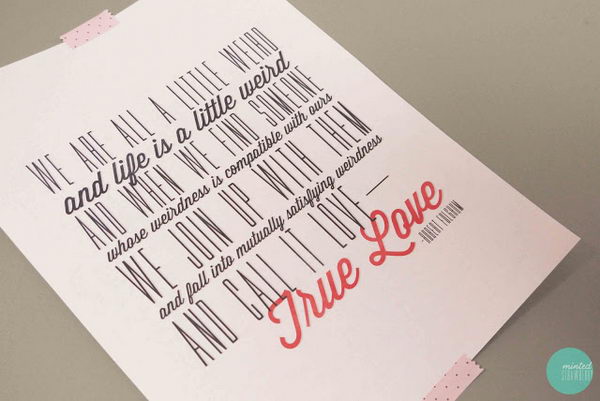 WE ARE ALL A LITTLE WEIRD
and life is a little weird
AND WHEN WE FIND SOMEONE
whose weirdness is compatible with ours
WE JOIN UP WITH THEM
and fall into mutually satisfying weirdness
AND CALL IT LOVE—
True Love
-ROBERT FULGHUM
minted